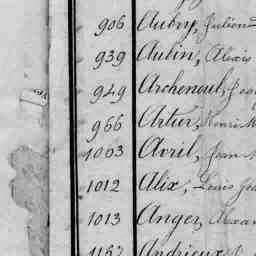 906 Aubry, Julien
939 Aubin, Alexis
949 Archeneul,
966 Artur, Henri M
1003 Avril, Jean
1012 Alix, Louis
1013 Anger, Alexan
1157 Andrieux